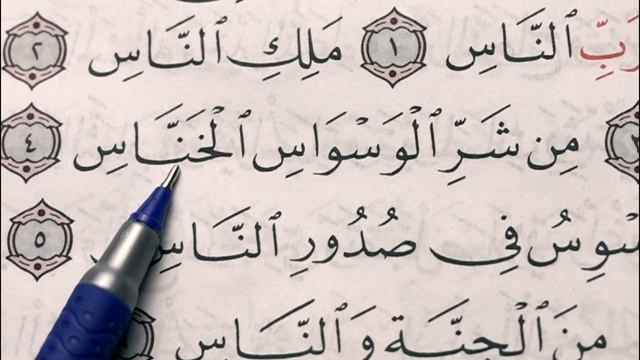 رَبِّ ٱلنَّاسِ ١ مَلِكِ ٱلنَّاسِ ٢
مِن شَرِّ ٱلْوَسْوَاسِ ٱلْخَنَّاسِ ٤
فِى صُدُورِ ٱلنَّاسِ ٥
مِنَ ٱلْجِنَّةِ وَٱلنَّاسِ